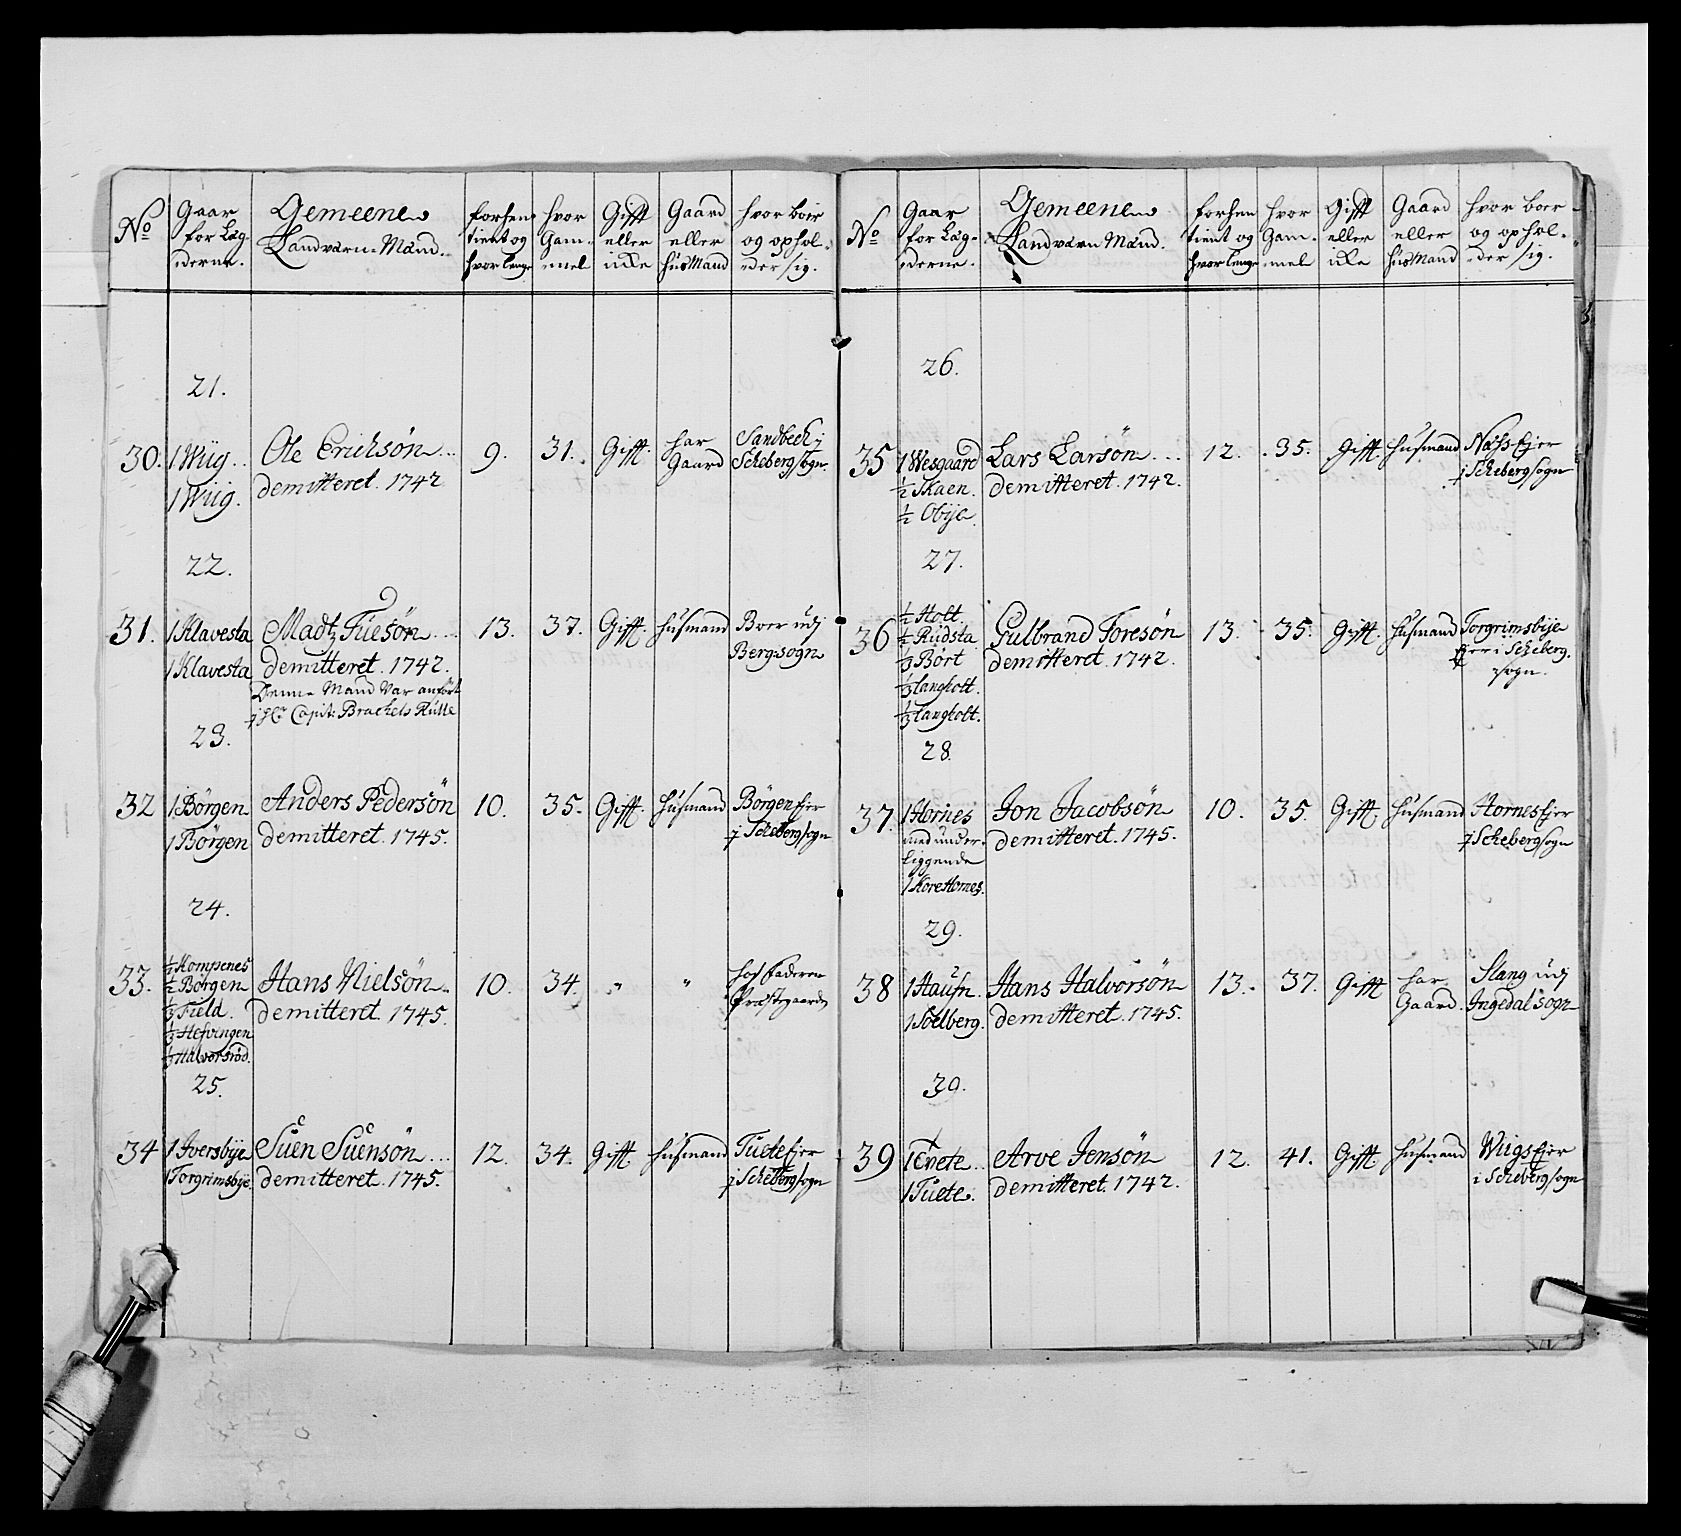 No
Gaar
for Læg-
derne.
Gemeene
Landværn-Mænd.
forhen
tient og
hvor lenge
hvor
Gam-
mel
Gifft
eller
icke
Gaard
eller
husMand
hvor boer
og ophol-
der sig.
21.
30.
1 Wiig
1 Wiig.
Ole Erichsøn
demitteret. 1742
9.
31.
Gifft.
har
Gaard
Sandbech i
Scheberg sogn
22.
31.
1 Klavesta
1 Klavesta
Madtz Tuesøn
demitteret. 1742.
Denne Mand var anført
i Hr Capit: Brachels Rulle
13.
37.
Gifft.
husmand
Boer udj
Berg sogn
23.
32
1 Börgen
1 Börgen
Anders Pedersön
demitteret. 1745.
10.
35.
Gifft.
husmand
Börgen Ejer
j Scheberg sogn
24.
33.
½ Kompenes
½ Börgen
⅓ Field.
⅓ Hefvingen
⅓ Halvorsröd.
Hans Nielsön
demitteret. 1745.
10.
34
"
"
hos Faderen
Præstgaarden
25.
34
1 Iversbÿe
1 Torgrimsbÿe
Suen Suensön
demitteret. 1745.
12.
34.
Gifft
husmand
Tuete Ejer
j Scheberg sogn
No
Gaar
for Læg-
derne.
Gemeene
Landværn Mænd.
forhen
tient og
hvor lenge
hvor
Gam-
mel
Gifft
eller
icke
Gaard
eller
husMand
hvor boer
og ophol-
der sig.
26.
35
1 Wesgaard
½ Skaen.
½ Obÿe
Lars Larsön
demitteret. 1742.
12.
35.
Gifft.
husmand
Næss Ejer
j Scheberg sogn
27.
36
½ Holt
½ Rüdsta
⅓ Bört
⅓ Langholt.
⅓ Langholt.
Gulbrand Toresön
demitteret. 1742.
13.
35.
Gifft.
husmand
Torgrimsbÿe
Ejer i Scheberg.
sogn.
28.
37.
1 Hornes
med under-
liggende
1 Kore Hornes.
Jon Jacobsön
demitteret. 1745.
10.
35.
Gifft.
husmand
Hornes Ejer
j Scheberg sogn
29.
38
1 Haufn
1 Soelberg.
Hans Halvorsön
demitteret. 1745.
13.
37.
Gifft
har
Gaard.
Slang udj
Ingedal sogn
30.
39
1 Tvete
1 Tuete.
Arve Jensön
demitteret. 1742.
12.
41.
Gifft
husmand
Wiigs Ejer
i Scheberg sogn